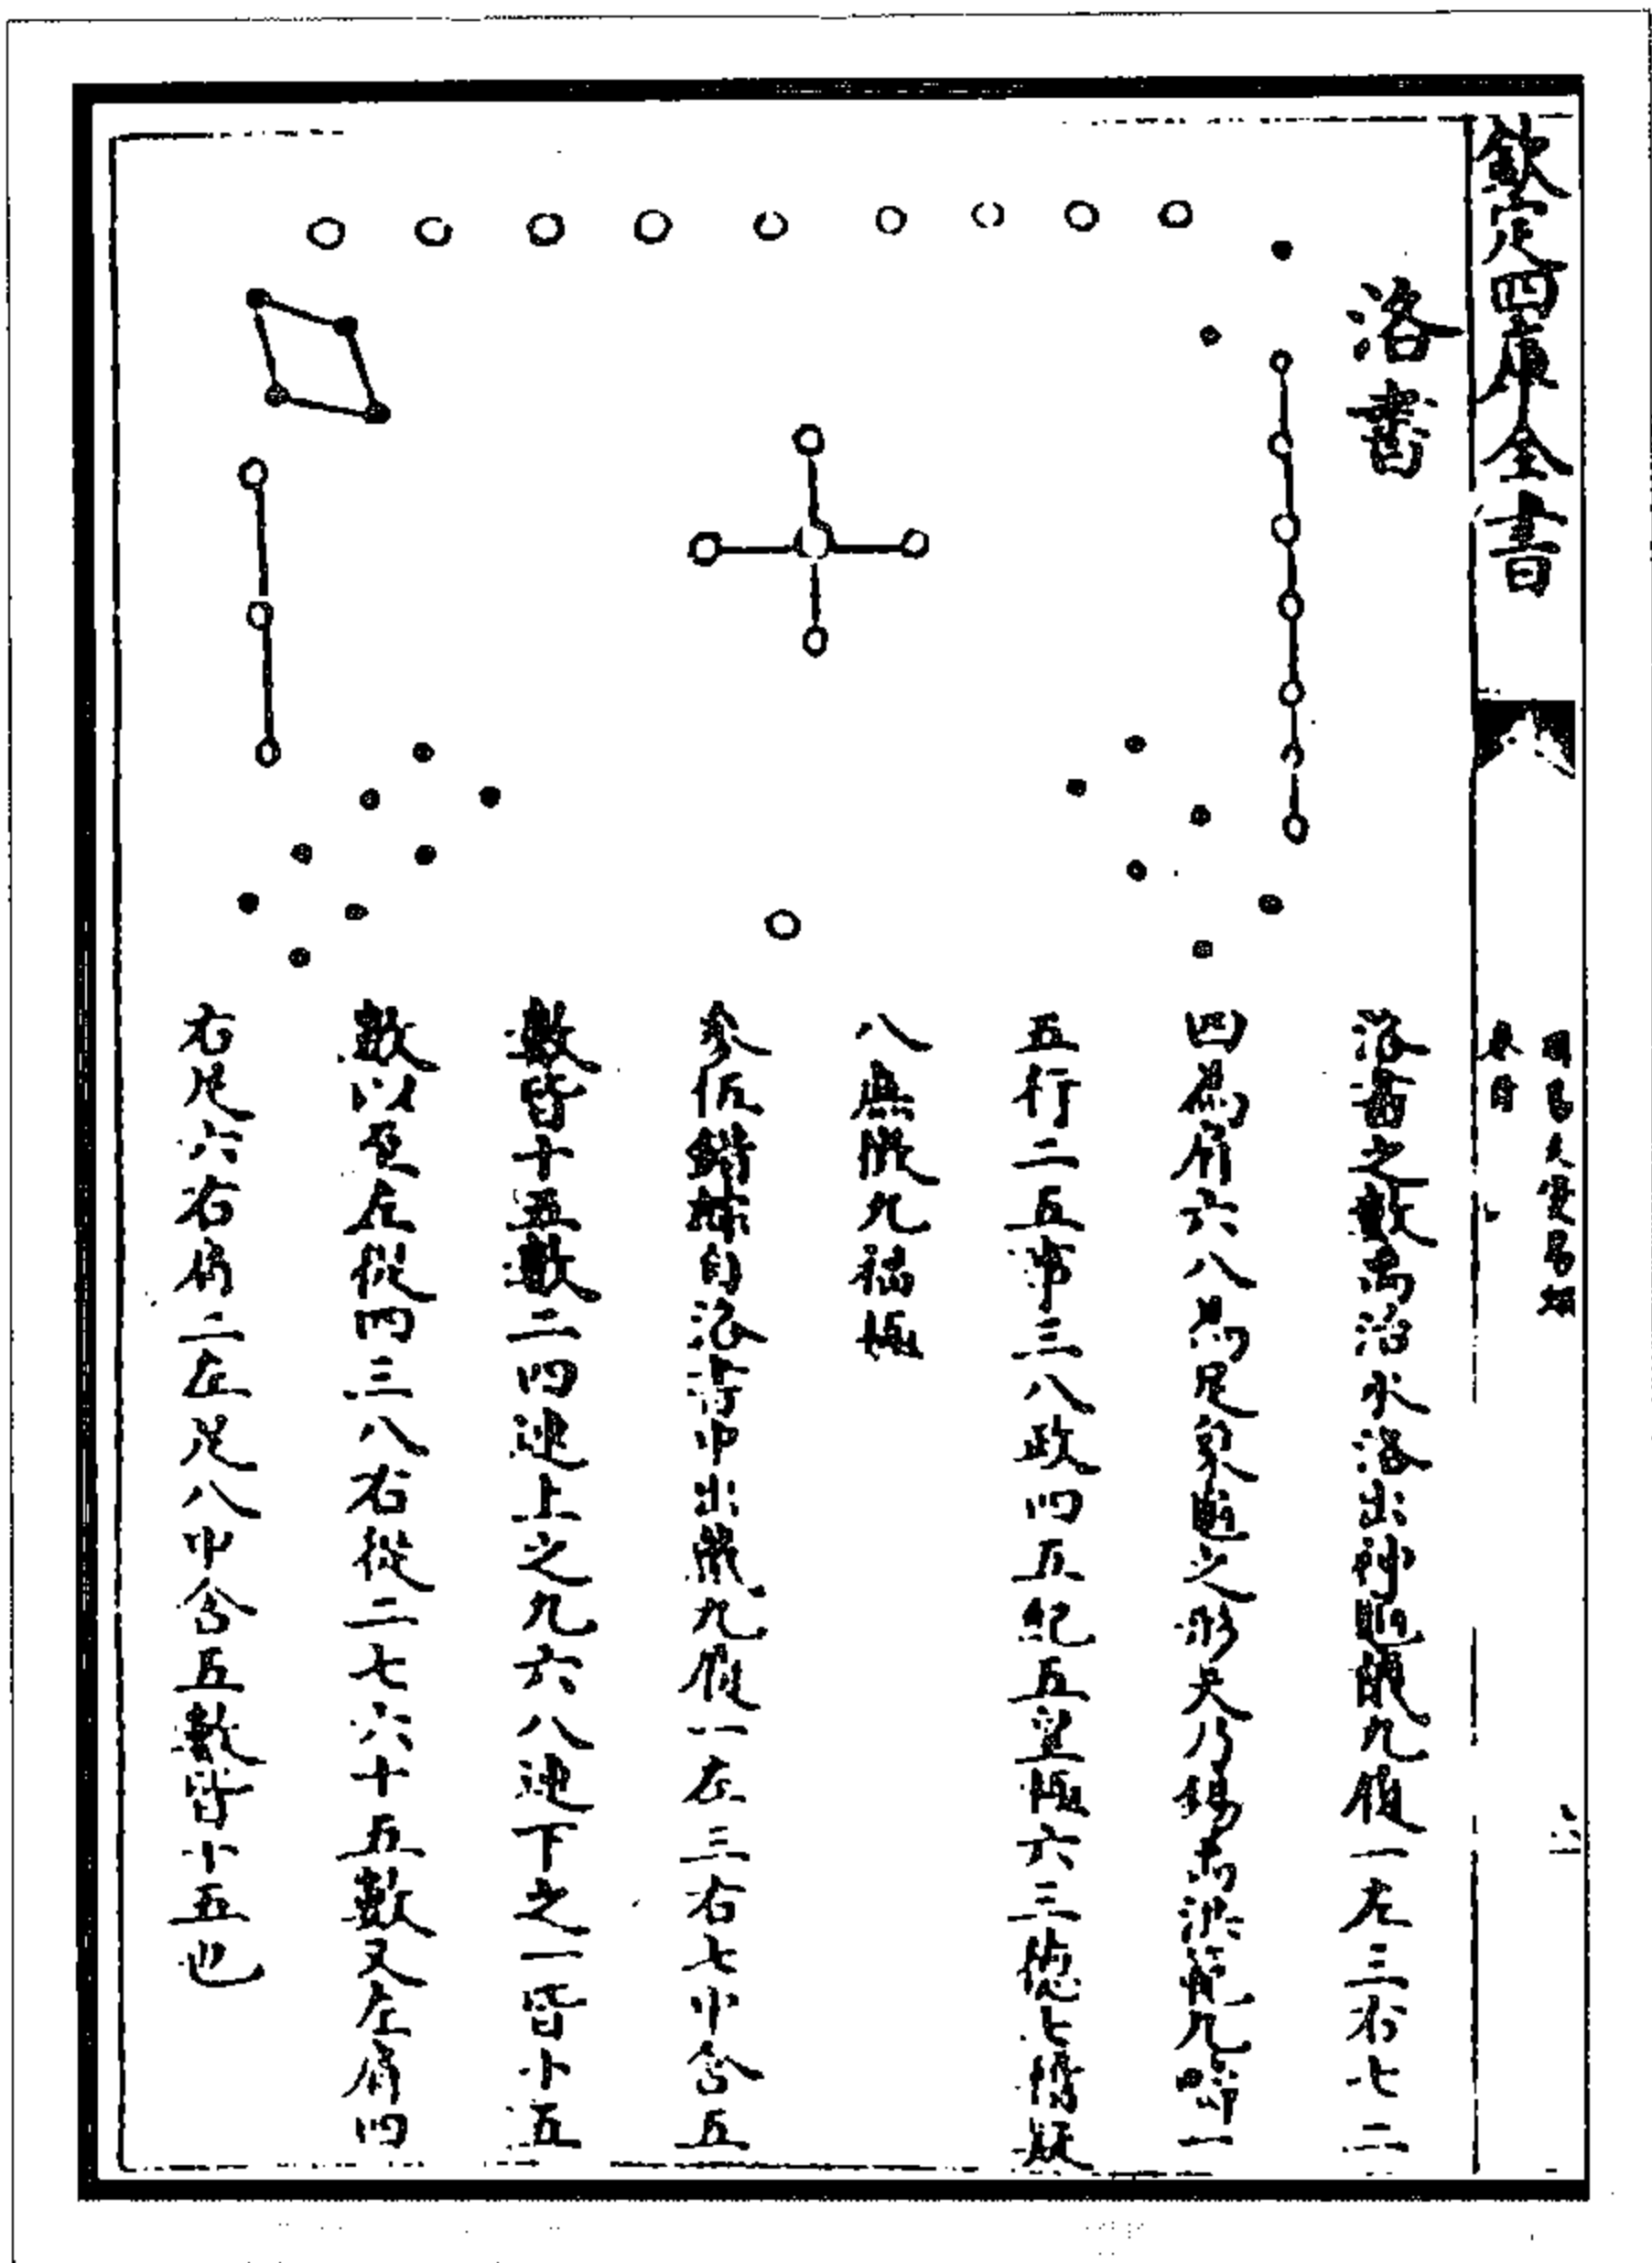 欽定四庫全書
卷首
洛書
洛書之數禹治水洛出神龜戴九履一左三右七二
四爲肩六八爲足象龜之形天乃錫禹洪範九疇一
五行二五事三八政四五紀五皇極六三德七稽疑
八庶徵九福極
參伍錯綜自洛書中出戴九履一左三右七中含五
數皆十五數二四連上之九六八連下之一皆十五
數以至左從四三八右從二七六十五數又左肩四
右足六右肩二左足八中含五數皆十五也